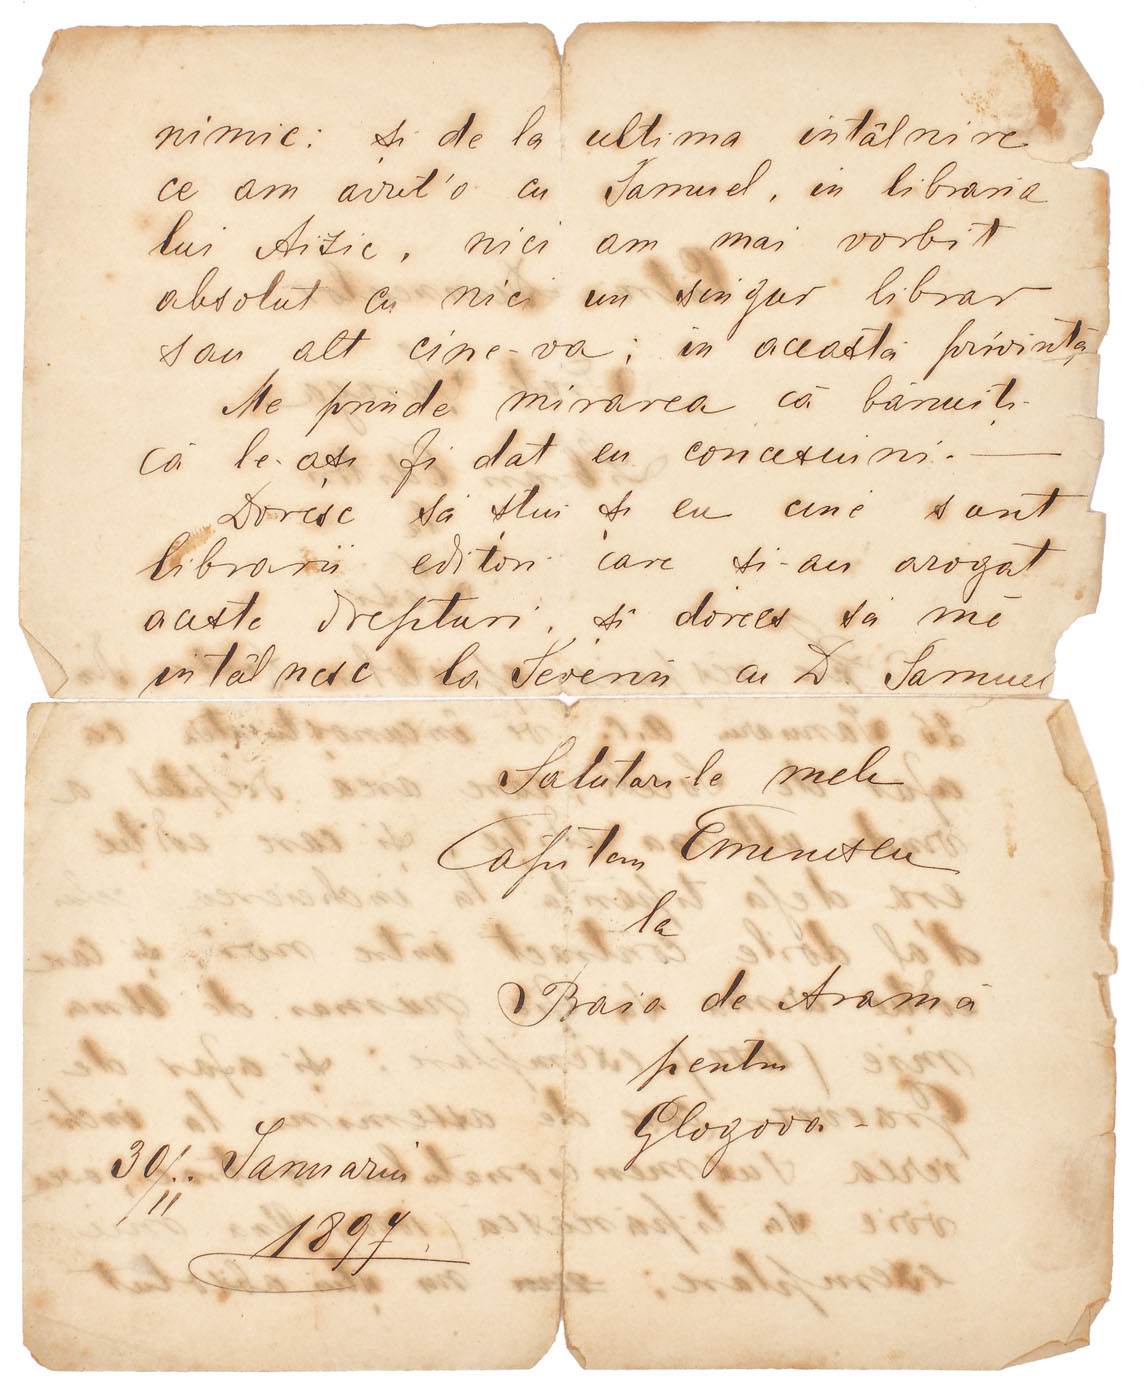 nimic: si de la ultima intâlnire
ce am avut'o cu Samuel, in libraria
lui Aizic, nici am mai vorbit
absolut cu nici un singur librar
sau alt cine-va; in aceasta privintă
Me prinde mirarea că bănuiti
că le-asi fi dat eu concesiuni. —
Doresc să stiu si eu cine sunt
librarii editori care si-au arogat
aceste drepturi, si doresc să mĕ
intâlnesc la Severin cu D. Samuel
Salutarile mele
Capitan Eminescu
la
Baia de Aramă
pentru
Glogova -
30/11 Ianuariu
1897.